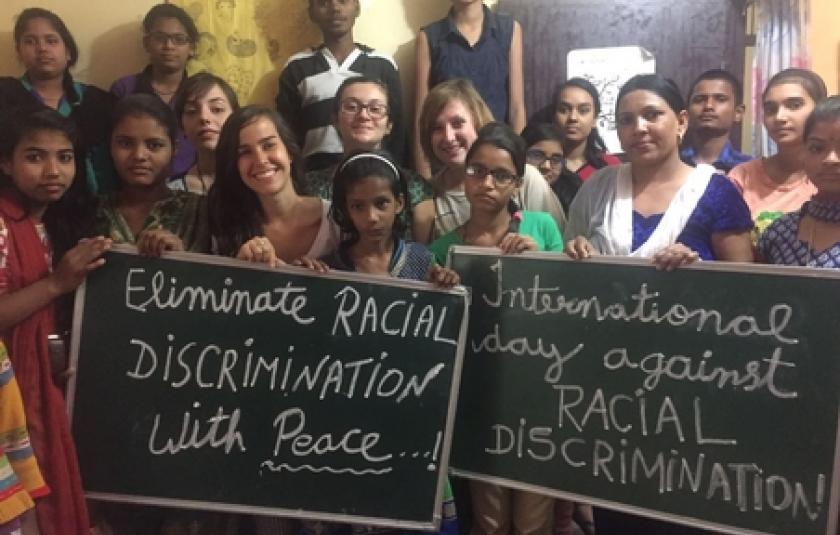 Eliminate RACIAL
DISCRIMINATION
With Peace...!
International
day against
RACIAL
DISCRIMINATION!